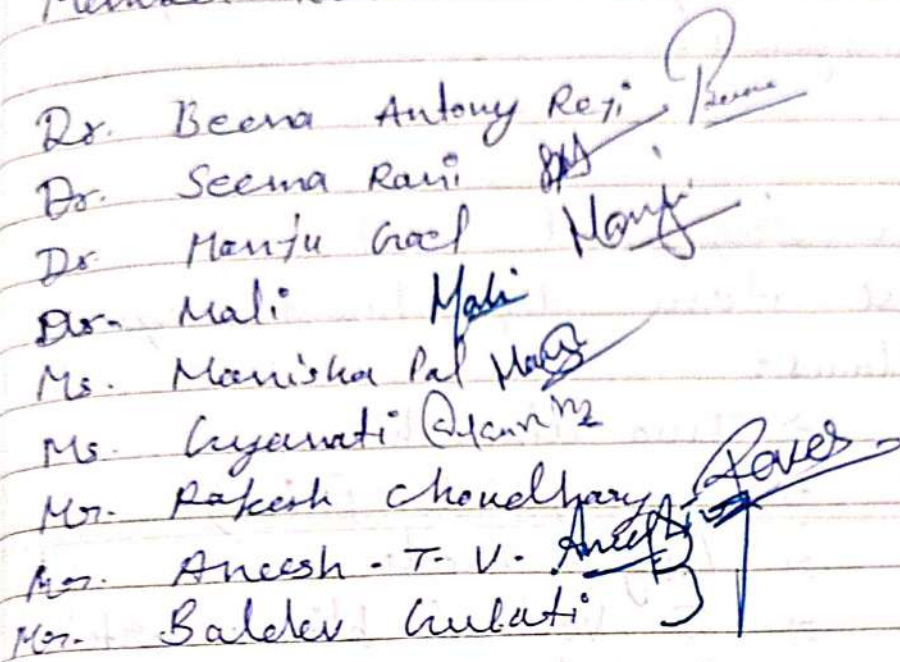 Dr. Beena Antony Reji Beena
Dr. Seema Rani
Dr. Manju Goel Manju
Dr. Mali Mali
Ms. Maniska Pal
Ms. Gyanwati
Mr. Rakesh Choudhary
Mr. Aneesh - T - V - Aneesh
Mr. Baldev Gulati